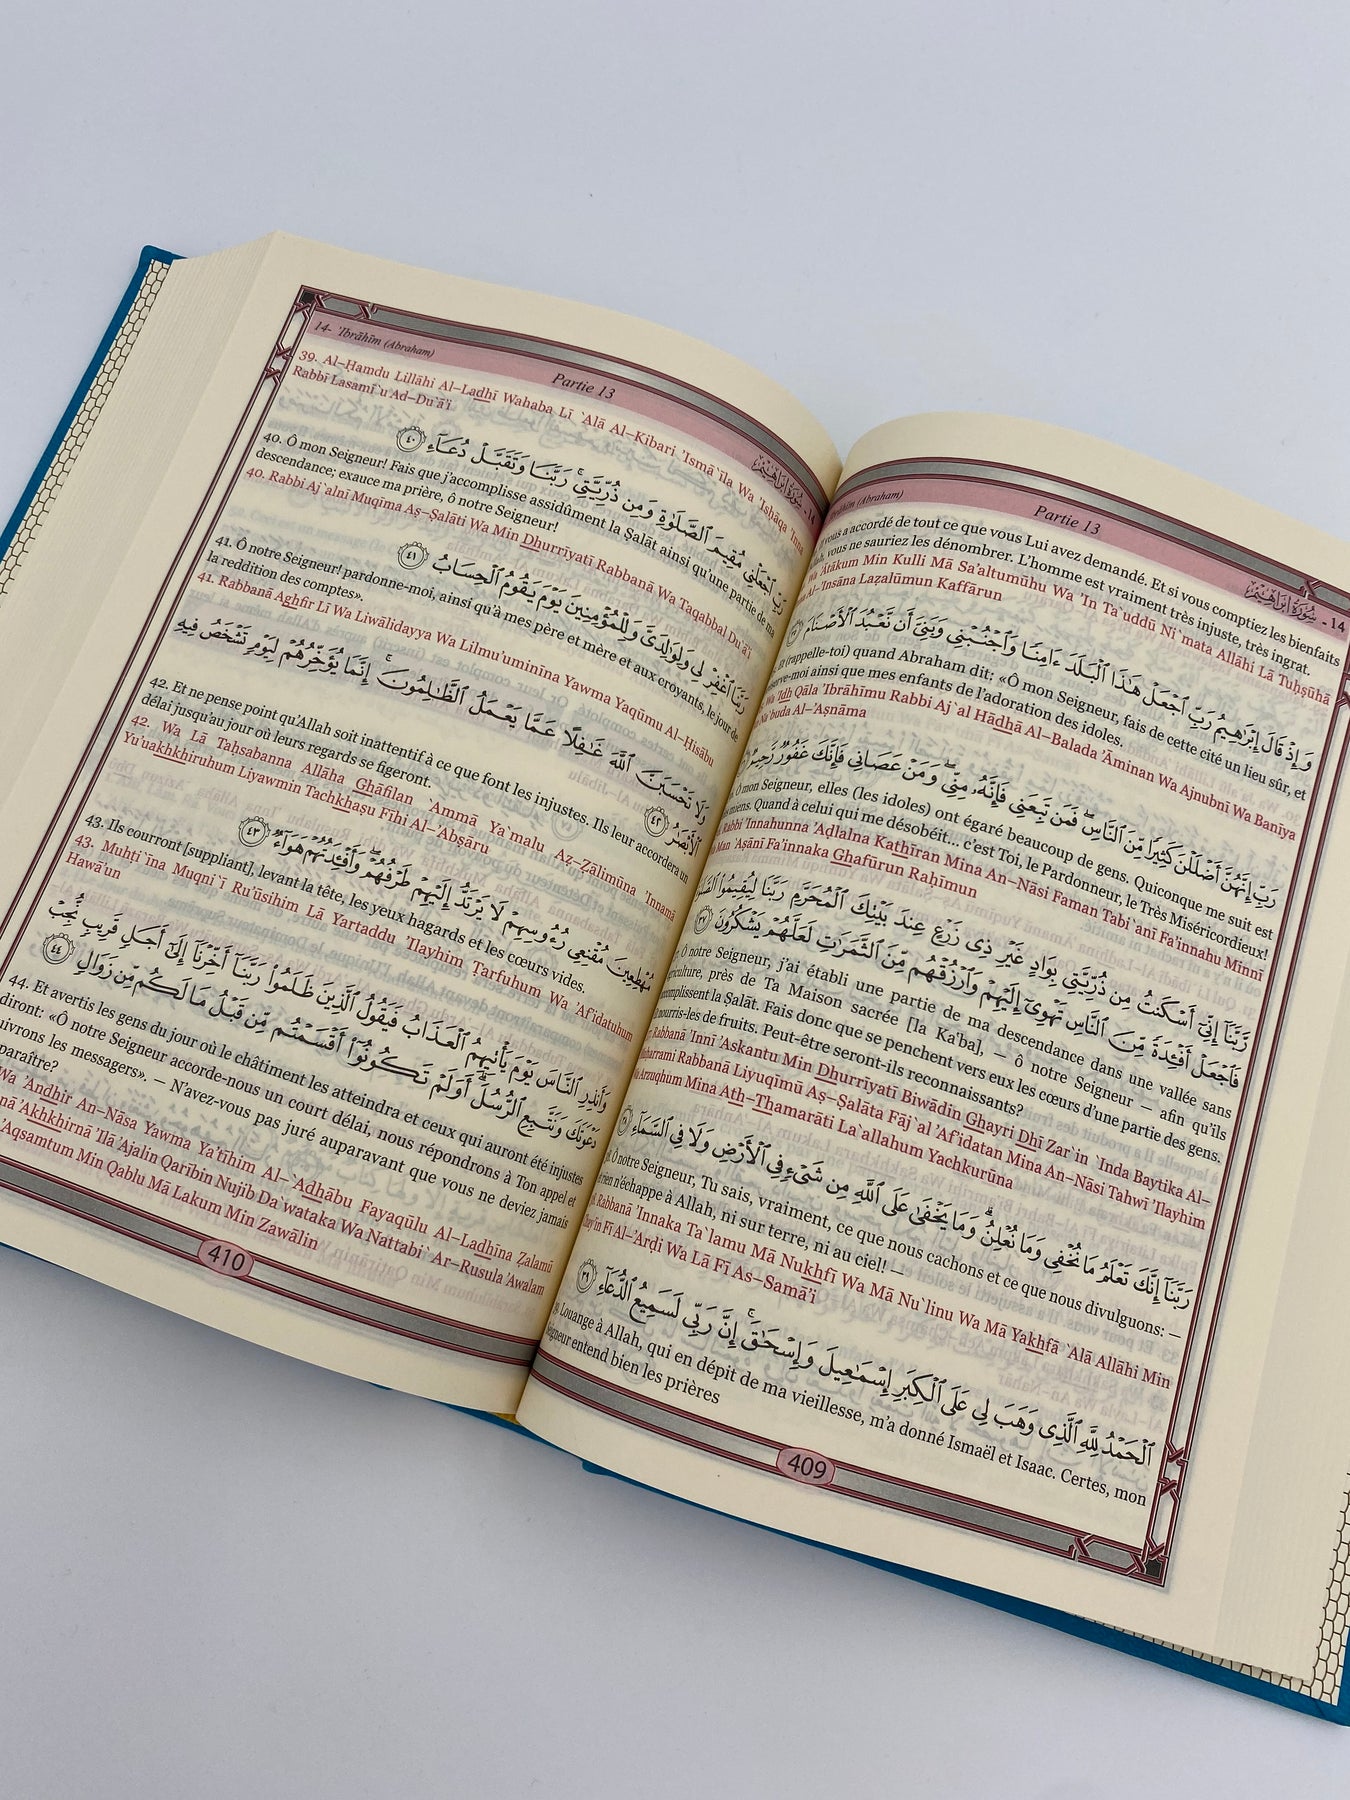 Partie 13
سُورَةُ إِبْرَاهِيم - 14
vous a accordé de tout ce que vous Lui avez demandé. Et si vous comptiez les bienfaits
vous ne sauriez les dénombrer. L'homme est vraiment très injuste, très ingrat.
'Ātākum Min Kulli Mā Sa'altumūhu Wa 'In Ta`uddū Ni`mata Allāhi Lā Tuĥşūhā
Al-'Insāna Lažalūmun Kaffārun
وَإِذْ قَالَ إِبْرَٰهِيمُ رَبِّ ٱجْعَلْ هَٰذَا ٱلْبَلَدَ ءَامِنًا وَٱجْنُبْنِى وَبَنِىَّ أَن نَّعْبُدَ ٱلْأَصْنَامَ
(rappelle-toi) quand Abraham dit: «Ô mon Seigneur, fais de cette cité un lieu sûr, et
ainsi que mes enfants de l'adoration des idoles.
Wa 'Idh Qāla 'Ibrāhīmu Rabbi Aj`al Hādhā Al-Balada 'Āminan Wa Ajnubnī Wa Banīya
Na`buda Al-'Aşnāma
رَبِّ إِنَّهُنَّ أَضْلَلْنَ كَثِيرًا مِّنَ ٱلنَّاسِ فَمَن تَبِعَنِى فَإِنَّهُۥ مِنِّى وَمَنْ عَصَانِى فَإِنَّكَ غَفُورٌ رَّحِيمٌ
mon Seigneur, elles (les idoles) ont égaré beaucoup de gens. Quiconque me suit est
miens. Quand à celui qui me désobéit... c'est Toi, le Pardonneur, le Très Miséricordieux!
Rabbi 'Innahunna 'Ađlalna Kathīran Mina An-Nāsi Faman Tabi`anī Fa'innahu Minnī
Man `Aşānī Fa'innaka Ghafūrun Raĥīmun
رَّبَّنَآ إِنِّىٓ أَسْكَنتُ مِن ذُرِّيَّتِى بِوَادٍ غَيْرِ ذِى زَرْعٍ عِندَ بَيْتِكَ ٱلْمُحَرَّمِ رَبَّنَا لِيُقِيمُوا۟
فَٱجْعَلْ أَفْـِٔدَةً مِّنَ ٱلنَّاسِ تَهْوِىٓ إِلَيْهِمْ وَٱرْزُقْهُم مِّنَ ٱلثَّمَرَٰتِ لَعَلَّهُمْ يَشْكُرُونَ ٣٧
Ô notre Seigneur, j'ai établi une partie de ma descendance dans une vallée sans
près de Ta Maison sacrée [la Ka'ba], — ô notre Seigneur — afin qu'ils
accomplissent la Şalāt. Fais donc que se penchent vers eux les cœurs d'une partie des gens.
nourris-les de fruits. Peut-être seront-ils reconnaissants?
Rabbanā 'Innī 'Askantu Min Dhurrīyatī Biwādin Ghayri Dhī Zar`in `Inda Baytika Al-
Rabbanā Liyuqīmū Aş-Şalāta Fāj`al 'Af'idatan Mina An-Nāsi Tahwī 'Ilayhim
Arzuqhum Mina Ath-Thamarāti La`allahum Yachkurūna
رَبَّنَآ إِنَّكَ تَعْلَمُ مَا نُخْفِى وَمَا نُعْلِنُ وَمَا يَخْفَىٰ عَلَى ٱللَّهِ مِن شَىْءٍ فِى ٱلْأَرْضِ وَلَا فِى ٱلسَّمَآءِ ٣٨
Ô notre Seigneur, Tu sais, vraiment, ce que nous cachons et ce que nous divulguons: —
rien n'échappe à Allah, ni sur terre, ni au ciel! —
Rabbanā 'Innaka Ta`lamu Mā Nukhfī Wa Mā Nu`linu Wa Mā Yakhfá `Alá Allāhi Min
Fī Al-'Arđi Wa Lā Fī As-Samā'i
ٱلْحَمْدُ لِلَّهِ ٱلَّذِى وَهَبَ لِى عَلَى ٱلْكِبَرِ إِسْمَٰعِيلَ وَإِسْحَٰقَ إِنَّ رَبِّى لَسَمِيعُ ٱلدُّعَآءِ ٣٩
Louange à Allah, qui en dépit de ma vieillesse, m'a donné Ismaël et Isaac. Certes, mon
Seigneur entend bien les prières
409
14- 'Ibrāhīm (Abraham)
Partie 13
سُورَةُ إِبْرَاهِيم - 14
39. Al-Ĥamdu Lillāhi Al-Ladhī Wahaba Lī `Alá Al-Kibari 'Ismā`īla Wa 'Isĥāqa 'Inna
Rabbī Lasamī`u Ad-Du`ā'i
رَبِّ ٱجْعَلْنِى مُقِيمَ ٱلصَّلَوٰةِ وَمِن ذُرِّيَّتِى رَبَّنَا وَتَقَبَّلْ دُعَآءِ ٤٠
40. Ô mon Seigneur! Fais que j'accomplisse assidûment la Şalāt ainsi qu'une partie de ma
descendance; exauce ma prière, ô notre Seigneur!
40. Rabbi Aj`alnī Muqīma Aş-Şalāti Wa Min Dhurrīyatī Rabbanā Wa Taqabbal Du`ā'i
رَبَّنَا ٱغْفِرْ لِى وَلِوَٰلِدَىَّ وَلِلْمُؤْمِنِينَ يَوْمَ يَقُومُ ٱلْحِسَابُ ٤١
41. Ô notre Seigneur! pardonne-moi, ainsi qu'à mes père et mère et aux croyants, le jour de
la reddition des comptes».
41. Rabbanā Aghfir Lī Wa Liwālidayya Wa Lilmu'uminīna Yawma Yaqūmu Al-Ĥisābu
وَلَا تَحْسَبَنَّ ٱللَّهَ غَٰفِلًا عَمَّا يَعْمَلُ ٱلظَّٰلِمُونَ إِنَّمَا يُؤَخِّرُهُمْ لِيَوْمٍ تَشْخَصُ فِيهِ
ٱلْأَبْصَٰرُ ٤٢
42. Et ne pense point qu'Allah soit inattentif à ce que font les injustes. Ils leur accordera un
délai jusqu'au jour où leurs regards se figeront.
42. Wa Lā Taĥsabanna Allāha Ghāfilan `Ammā Ya`malu Až-Žālimūna 'Innamā
Yu'uakhkhiruhum Liyawmin Tachkhaşu Fīhi Al-'Abşāru
مُهْطِعِينَ مُقْنِعِى رُءُوسِهِمْ لَا يَرْتَدُّ إِلَيْهِمْ طَرْفُهُمْ وَأَفْـِٔدَتُهُمْ هَوَآءٌ ٤٣
43. Ils courront [suppliant], levant la tête, les yeux hagards et les cœurs vides.
43. Muhţi`īna Muqni`ī Ru'ūsihim Lā Yartaddu 'Ilayhim Ţarfuhum Wa 'Af'idatuhum
Hawā'un
وَأَنذِرِ ٱلنَّاسَ يَوْمَ يَأْتِيهِمُ ٱلْعَذَابُ فَيَقُولُ ٱلَّذِينَ ظَلَمُوا۟ رَبَّنَآ أَخِّرْنَآ إِلَىٰٓ أَجَلٍ قَرِيبٍ نُّجِبْ
دَعْوَتَكَ وَنَتَّبِعِ ٱلرُّسُلَ أَوَلَمْ تَكُونُوٓا۟ أَقْسَمْتُم مِّن قَبْلُ مَا لَكُم مِّن زَوَالٍ ٤٤
44. Et avertis les gens du jour où le châtiment les atteindra et ceux qui auront été injustes
diront: «Ô notre Seigneur accorde-nous un court délai, nous répondrons à Ton appel et
suivrons les messagers». — N'avez-vous pas juré auparavant que vous ne deviez jamais
paraître?
Wa 'Andhir An-Nāsa Yawma Ya'tīhim Al-`Adhābu Fayaqūlu Al-Ladhīna Žalamū
'Akhkhirnā 'Ilá 'Ajalin Qarībin Nujib Da`wataka Wa Nattabi` Ar-Rusula 'Awalam
'Aqsamtum Min Qablu Mā Lakum Min Zawālin
410